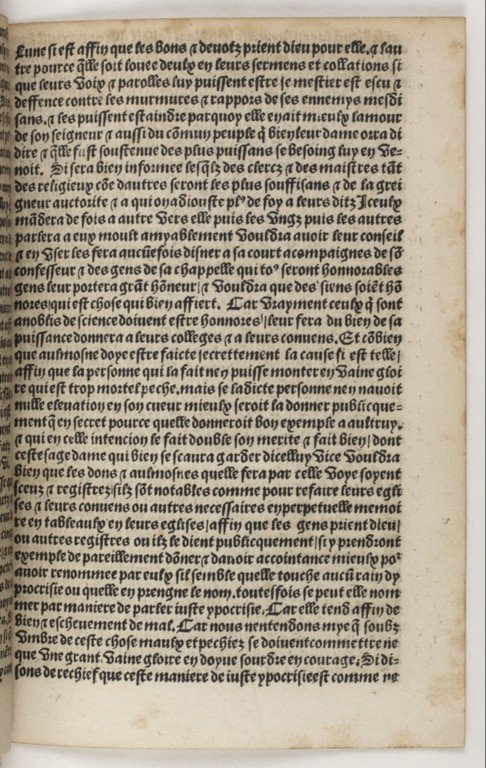 Lune si est affin que les bons ⁊ devotz prient dieu pour elle. ⁊ lau
tre pource q̃lle soit louee deulx en leurs sermens et collations si
que leurs voix ⁊ parolles luy puissent estre se mestier est escu ⁊
deffence contre les murmures ⁊ rappors de ses ennemys mesdi
sans. ⁊ les puissent estaindre parquoy elle en ait mieulx lamour
de son seigneur ⁊ aussi du cõmun peuple q̃ bien leur dame orra di
dire ⁊ q̃lle fust soustenue des plus puissans se besoing luy en ve-
noit. Si sera bien informee lesq̃lz des clercz ⁊ des maistres tãt
des religieux cõe dautres seront les plus souffisans ⁊ de la grei
gneur auctorite ⁊ a qui on adiouste plꝰ de foy a leurs ditz Iceulx
mãdera de fois a autre vers elle puis les vngz puis les autres
parlera a eux moult amyablement vouldra avoir leur conseil
⁊ en vser les fera aucũefois disner a sa court acompaignes de sõ
confesseur ⁊ des gens de sa chappelle qui toꝰ seront honnorables
gens leur portera grãt hõneur/ ⁊ vouldra que des siens soiẽt hõ
nores/qui est chose qui bien affiert. Car vrayment ceulx q̃ sont
anoblis de science doivent estre honnores/leur fera du bien de sa
puissance donnera a leurs colleges ⁊ a leurs convens. Et cõbien
que aulmosne doye estre faicte secrettement la cause si est telle/
affin que la personne qui la fait nen puisse monter en vaine gloi
re qui est trop mortel peche. mais se ladicte personne nen navoit
nulle elevation en son cueur mieulx seroit la donner publicque-
mẽt q̃ en secret pource quelle donneroit bon exemple a aultruy.
⁊ qui en celle intencion le fait double son merite ⁊ fait bien/ dont
ceste sage dame qui bien se scaura garder dicelluy vice vouldra
bien que les dons ⁊ aulmosnes quelle fera par celle voye soyent
sceuz ⁊ registrez/silz sõt notables comme pour refaire leurs egli
ses ⁊ leurs convens ou autres necessaires en perpetuelle memoi
re en tableaulx en leurs eglises/affin que les gens prient dieu/
ou autres registres ou ilz le dient publicquement/si y prendront
exemple de pareillement dõner ⁊ davoir accointance mieulx poꝛ
avoir renommee par eulx sil semble quelle touche aucũ rain dy
procrisie ou quelle en prengne le nom. toutesfois se peut elle nom
mer par maniere de parler iuste ypocrisie. Car elle tend affin de
bien ⁊ eschevement de mal. Car nous nentendons mye q̃ soubz
vmbre de ceste chose maulx et pechiez se doivent commettre ne
que vne grant vaine gloire en doyve sourdre en courage. Si di-
sons de rechief que ceste maniere de iuste ypocrisie est comme ne